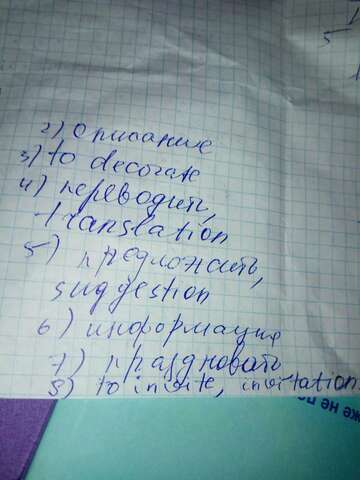 2) Описание
3) to decorate
4) переводить,
translation
5) предложить,
suggestion
6) информация
7) праздновать
8) to invite, invitation
5
же не по